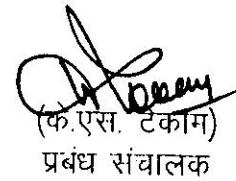 (के.एस. टेकाम)
प्रबंध संचालक